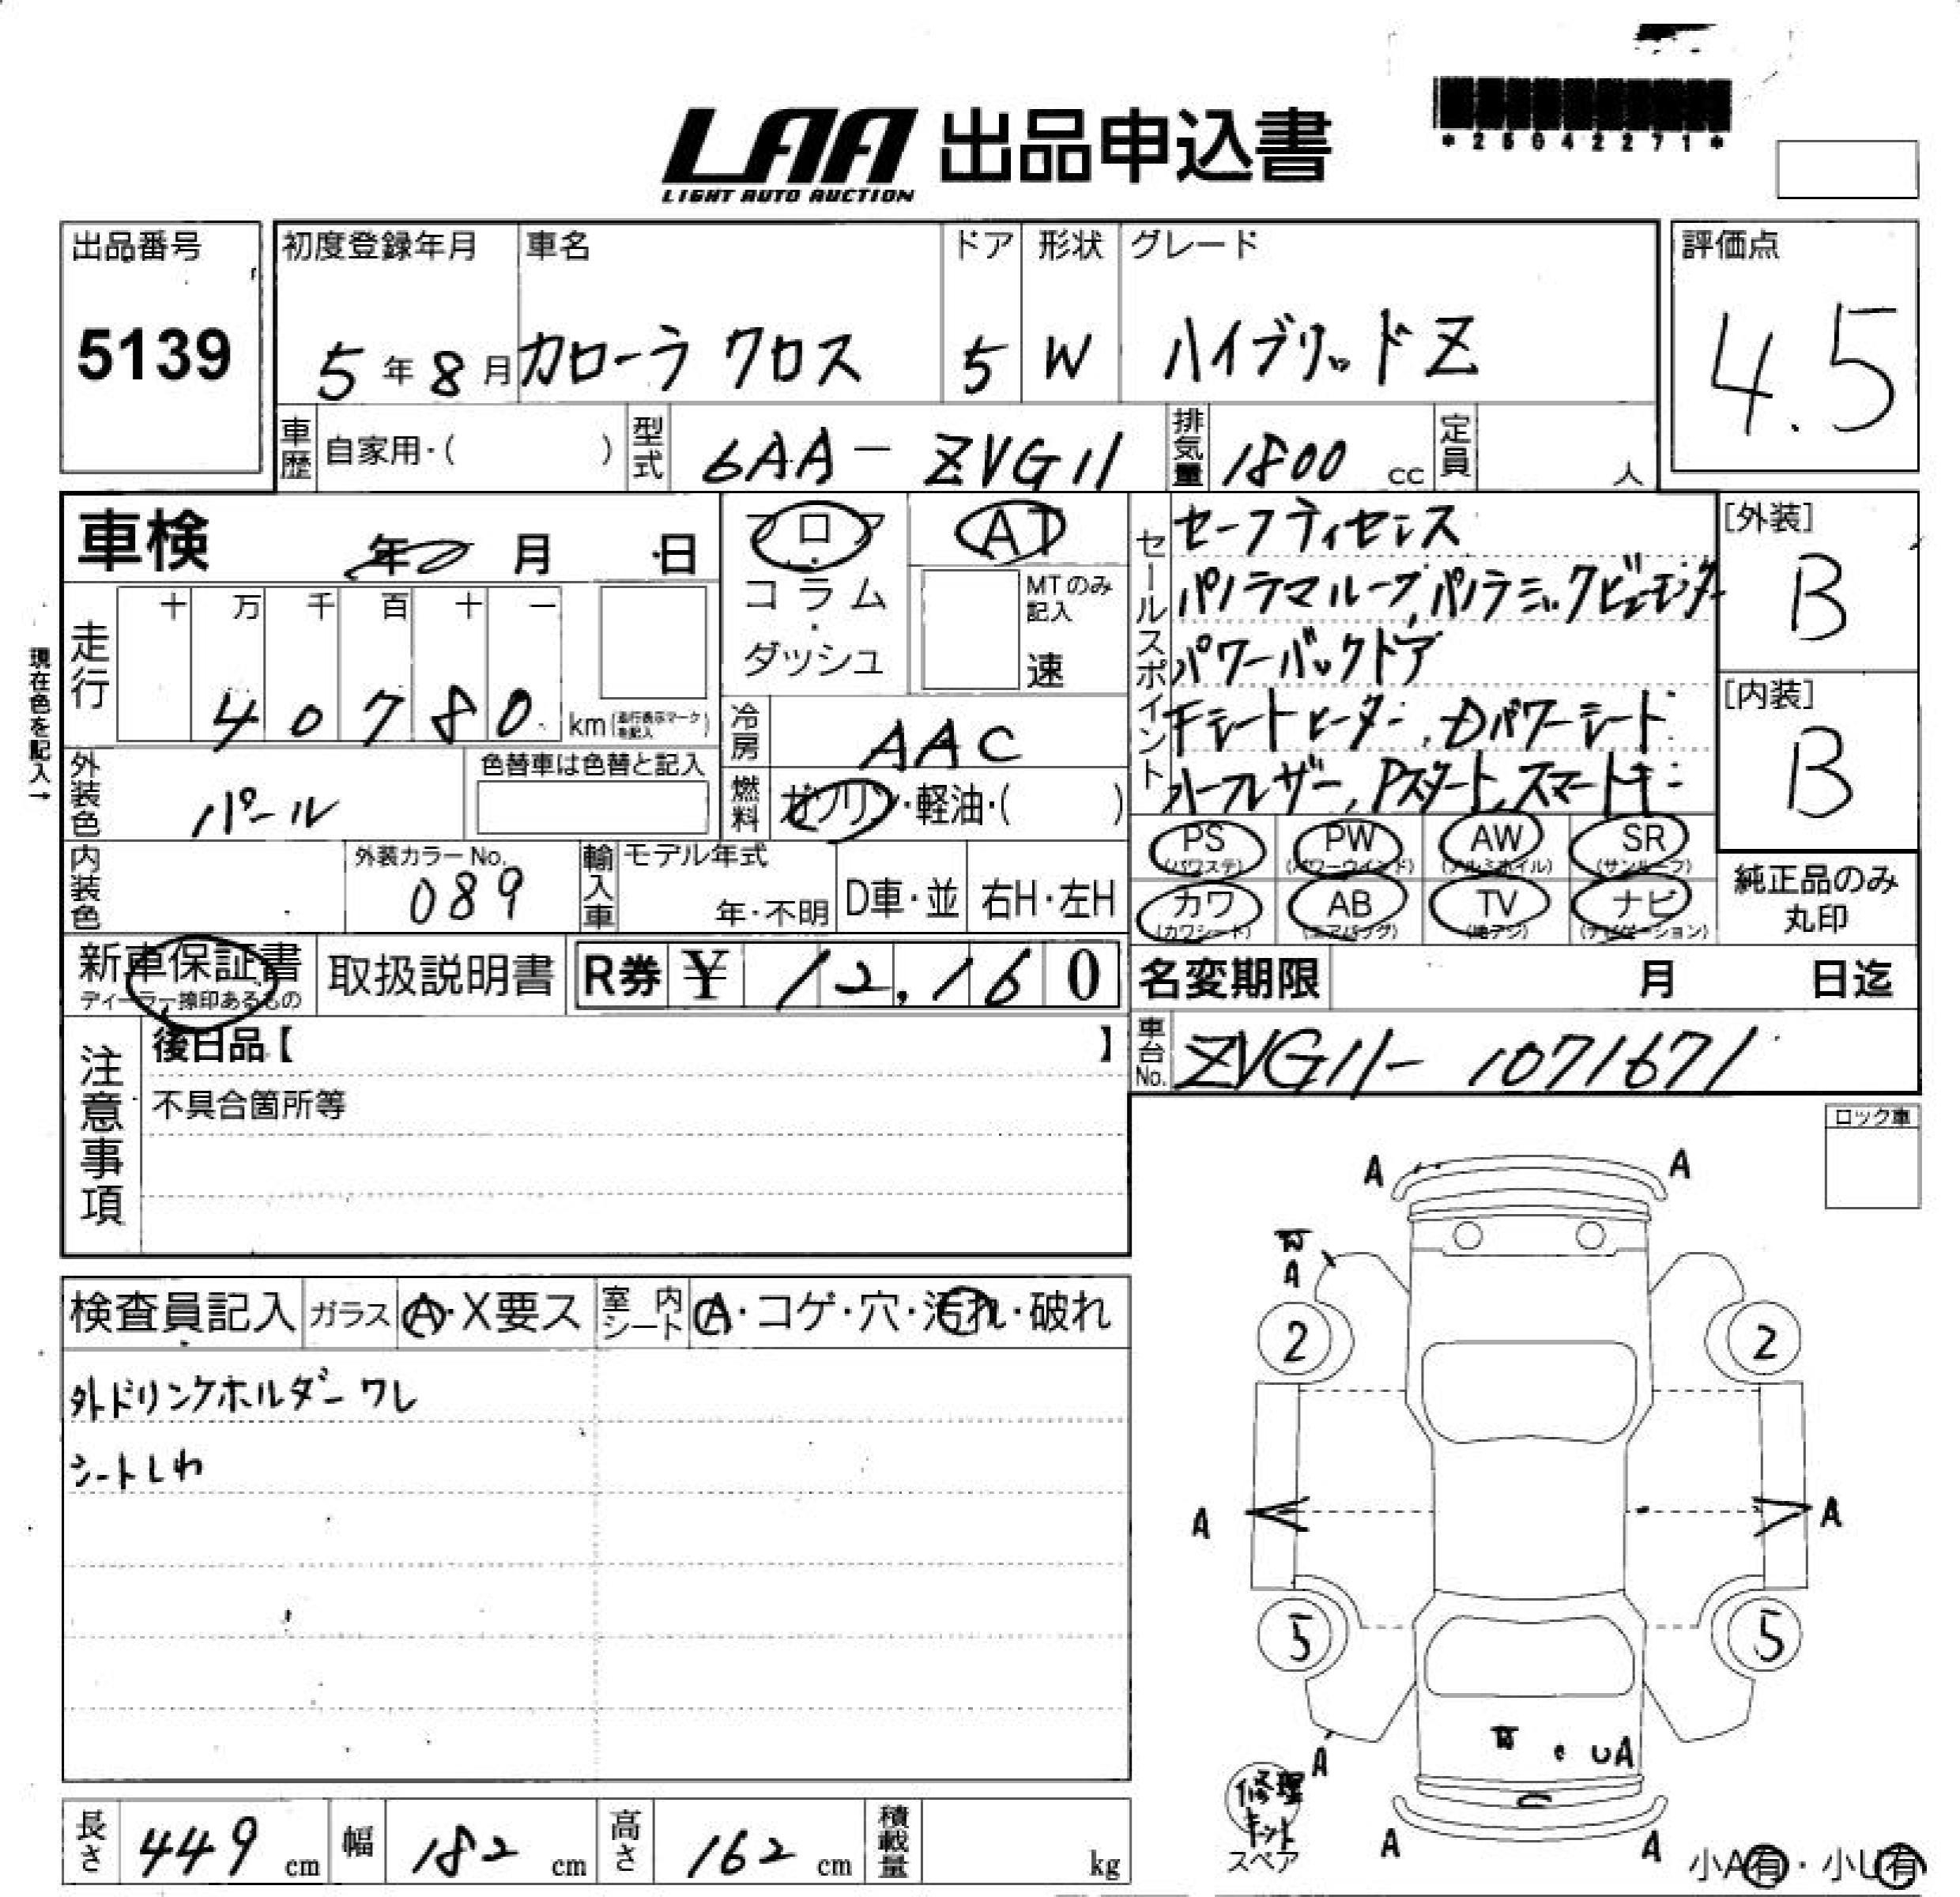 LAA 出品申込書
LIGHT AUTO AUCTION
*25042271*
出品番号
5139
初度登録年月
5年8月
車名
カローラ クロス
ドア
5
形状
W
グレード
ハイブリッド Z
評価点
4.5
車歴 自家用・( )
型式 6AA-ZVG11
排気量 1800 cc
定員 人
車検 年 月 日
フロア
・
コラム
・
ダッシュ
AT
MTのみ
記入
速
現在色を記入→
走行 十 万 千 百 十 一
40780 km (走行表示マークを記入)
冷房 AAC
燃料 ガソリン・軽油・( )
外装色 パール
色替車は色替と記入
内装色
外装カラーNo.
089
輸入車 モデル年式
年・不明
D車・並
右H・左H
セールスポイント
セーフティセンス
パノラマルーフ, パノラミックビューモニター
パワーバックドア
シートヒーター, Dパワーシート
ハーフレザー, Pスタート, スマートキー
[外装]
B
[内装]
B
PS (パワステ)
PW (パワーウインド)
AW (アルミホイル)
SR (サンルーフ)
カワ (カワシート)
AB (エアバッグ)
TV (地デジ)
ナビ (ナビゲーション)
純正品のみ
丸印
新車保証書
ディーラー捺印あるもの
取扱説明書
R券 ¥ 12,160
名変期限 月 日迄
車台No. ZVG11-1071671
注意事項
後日品【 】
不具合箇所等
ロック車
検査員記入
ガラス A・X要ス
室内シート A・コゲ・穴・汚れ・破れ
外ドリンクホルダーワレ
シートしわ
A A
A
2 2
A A
5 5
A
UA
A A
修理
キット
スペア
小A有・小U有
長さ 449 cm
幅 182 cm
高さ 162 cm
積載量 kg